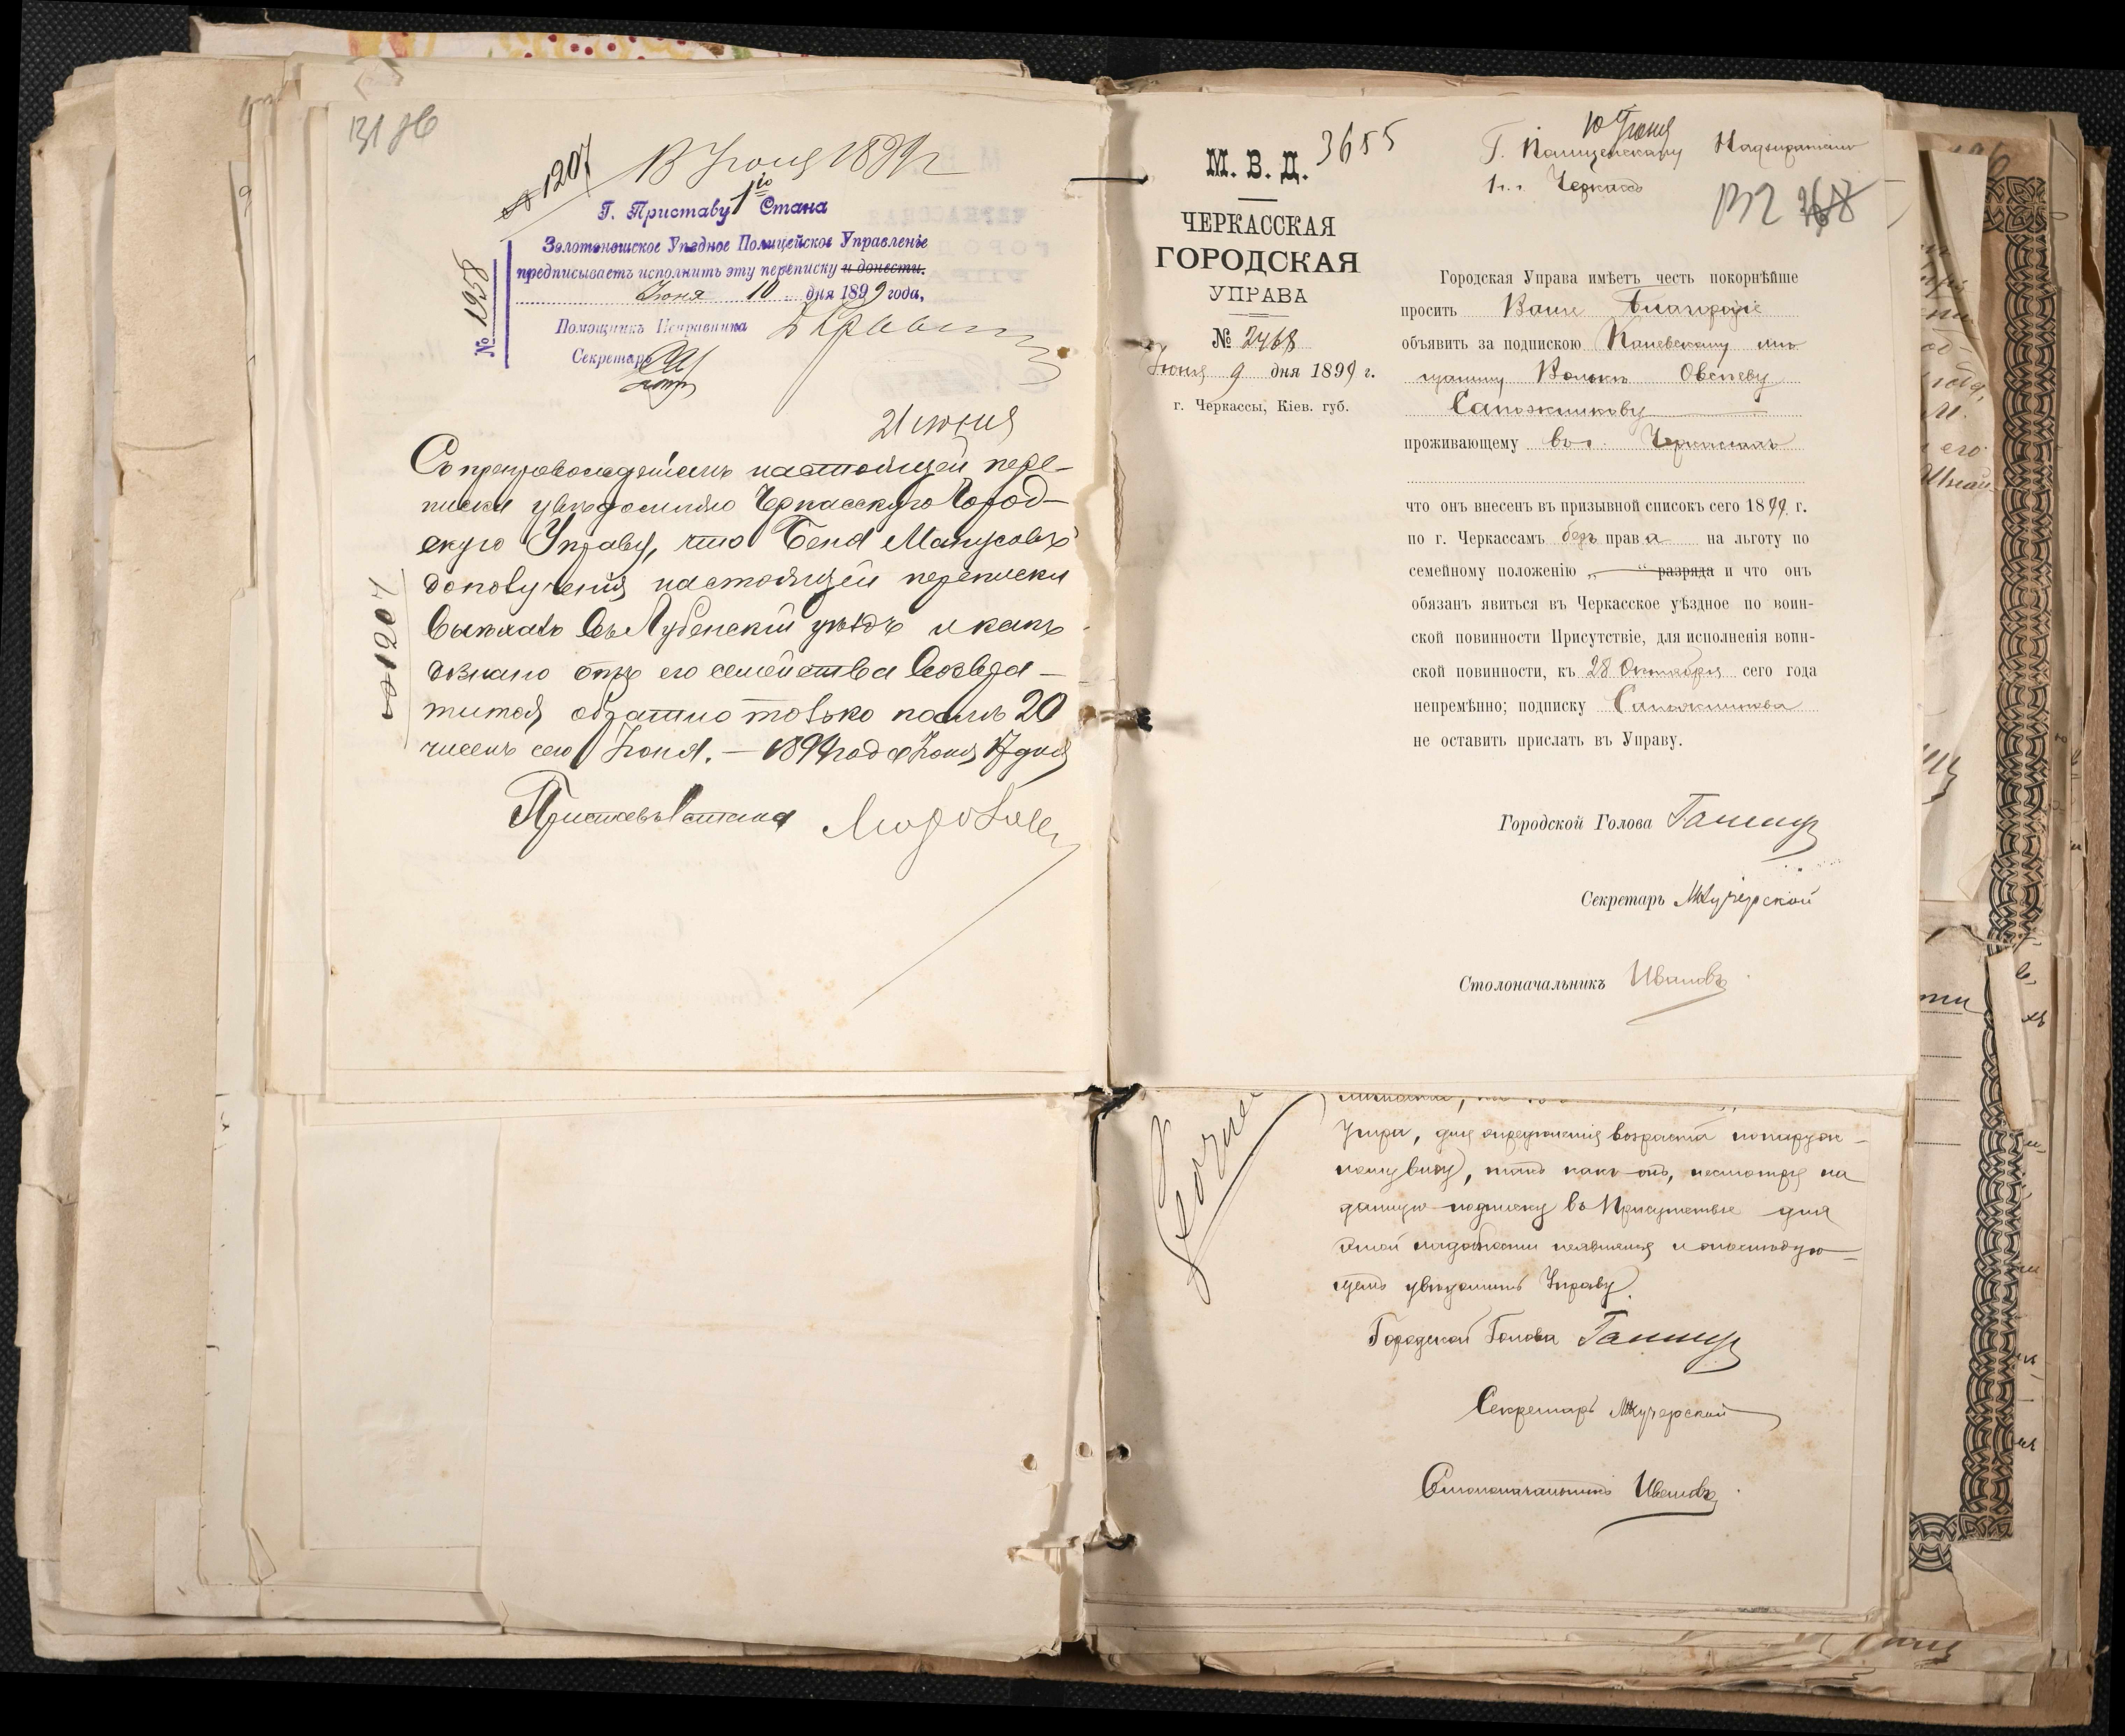 131 об
№ 1207
13 Июня 1899 г
Г. Приставу 1го Стана
Золотоношское Уѣздное Полицейское Управленіе
предписываетъ исполнить эту переписку и донести.
Июня 10 дня 1899 года,
Помощникъ Исправника
Секретарь
№ 1958
21 июня
Съ препровожденіемъ настоящей пере-
писки увѣдомляю Черкасскую Город-
скую Управу, что Беня Манусовъ
до получения настоящей переписки
выехалъ въ Лубенский уѣздъ и какъ
дознано отъ его семейства возвра-
тится обратно только послѣ 20
чиселъ сего Июня. — 1899 года Июня 17 дня
Приставъ 1 стана
№ 1207
М. В. Д.
3655
ЧЕРКАССКАЯ
ГОРОДСКАЯ
УПРАВА
№ 2468
Июня 9 дня 1899 г.
г. Черкассы, Кіев. губ.
10 Июня
Г. Полицейскому Надзирателю
1 ч. г. Черкассъ
132
Городская Управа имѣетъ честь покорнѣйше
просить Ваше Благородіе
объявить за подпискою Каневскому мѣ
щанину Волькѣ Овсееву
Сапожникову
проживающему въ г. Черкассахъ
что онъ внесенъ въ призывной списокъ сего 1899 г.
по г. Черкассамъ безъ права на льготу по
семейному положенію „ “ разряда и что онъ
обязанъ явиться въ Черкасское уѣздное по воин-
ской повинности Присутствіе, для исполненія воин-
ской повинности, къ 28 Октября сего года
непремѣнно; подписку Сапожникова
не оставить прислать въ Управу.
Городской Голова
Секретарь Мкучерской
Столоначальникъ Ивановъ
для опредѣленія возраста по наруж-
ному виду, такъ какъ онъ, несмотря на
данную подписку въ Присутствіе для
этой надобности неявился и о послѣдую-
щемъ увѣдомить Управу.
Городской Голова
Секретарь Мкучерской
Столоначальникъ Ивановъ